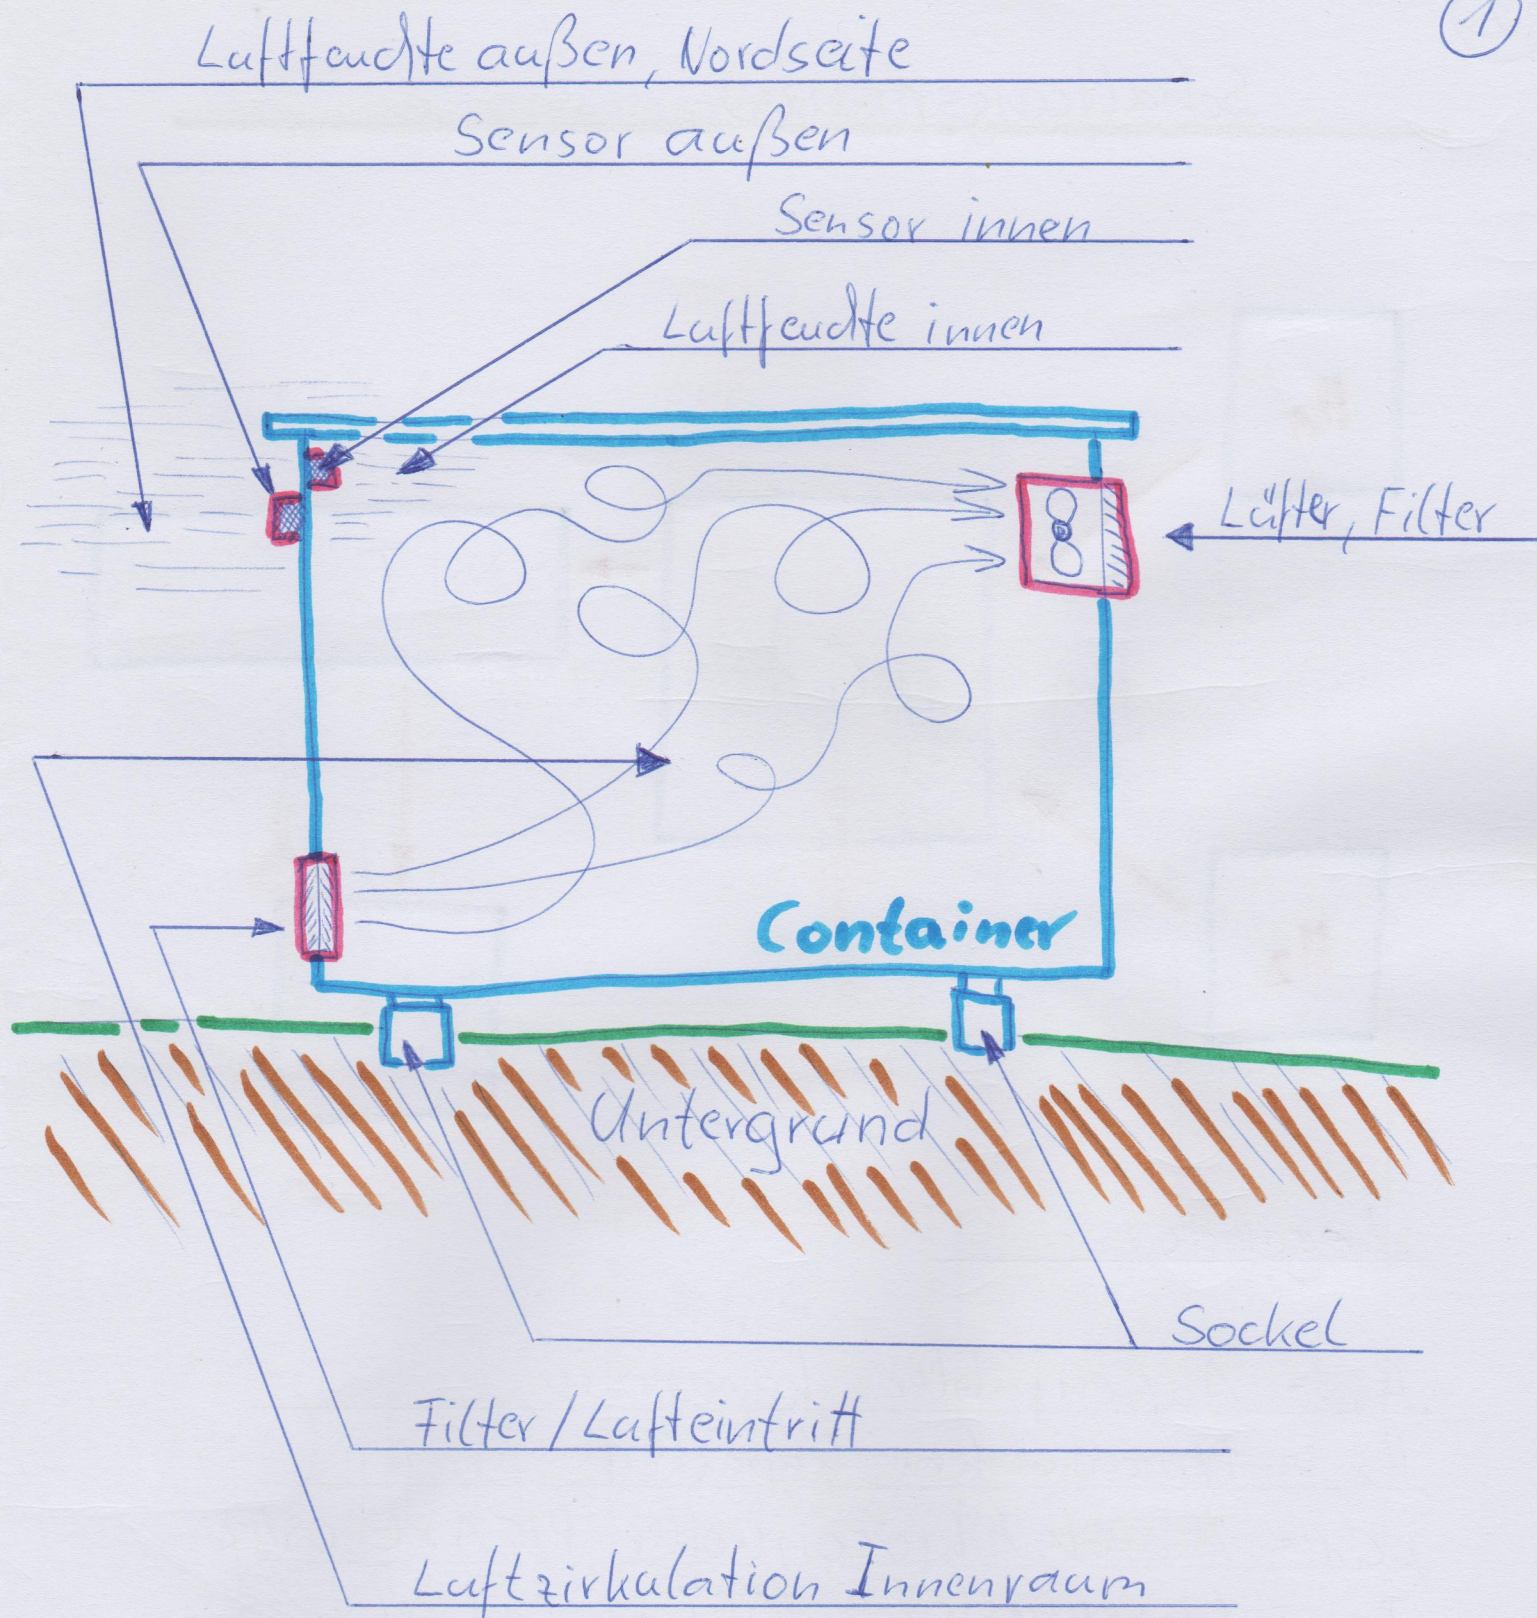 1
Luftfeuchte außen, Nordseite
Sensor außen
Sensor innen
Luftfeuchte innen
Lüfter, Filter
Container
Untergrund
Sockel
Filter / Lufteintritt
Luftzirkulation Innenraum